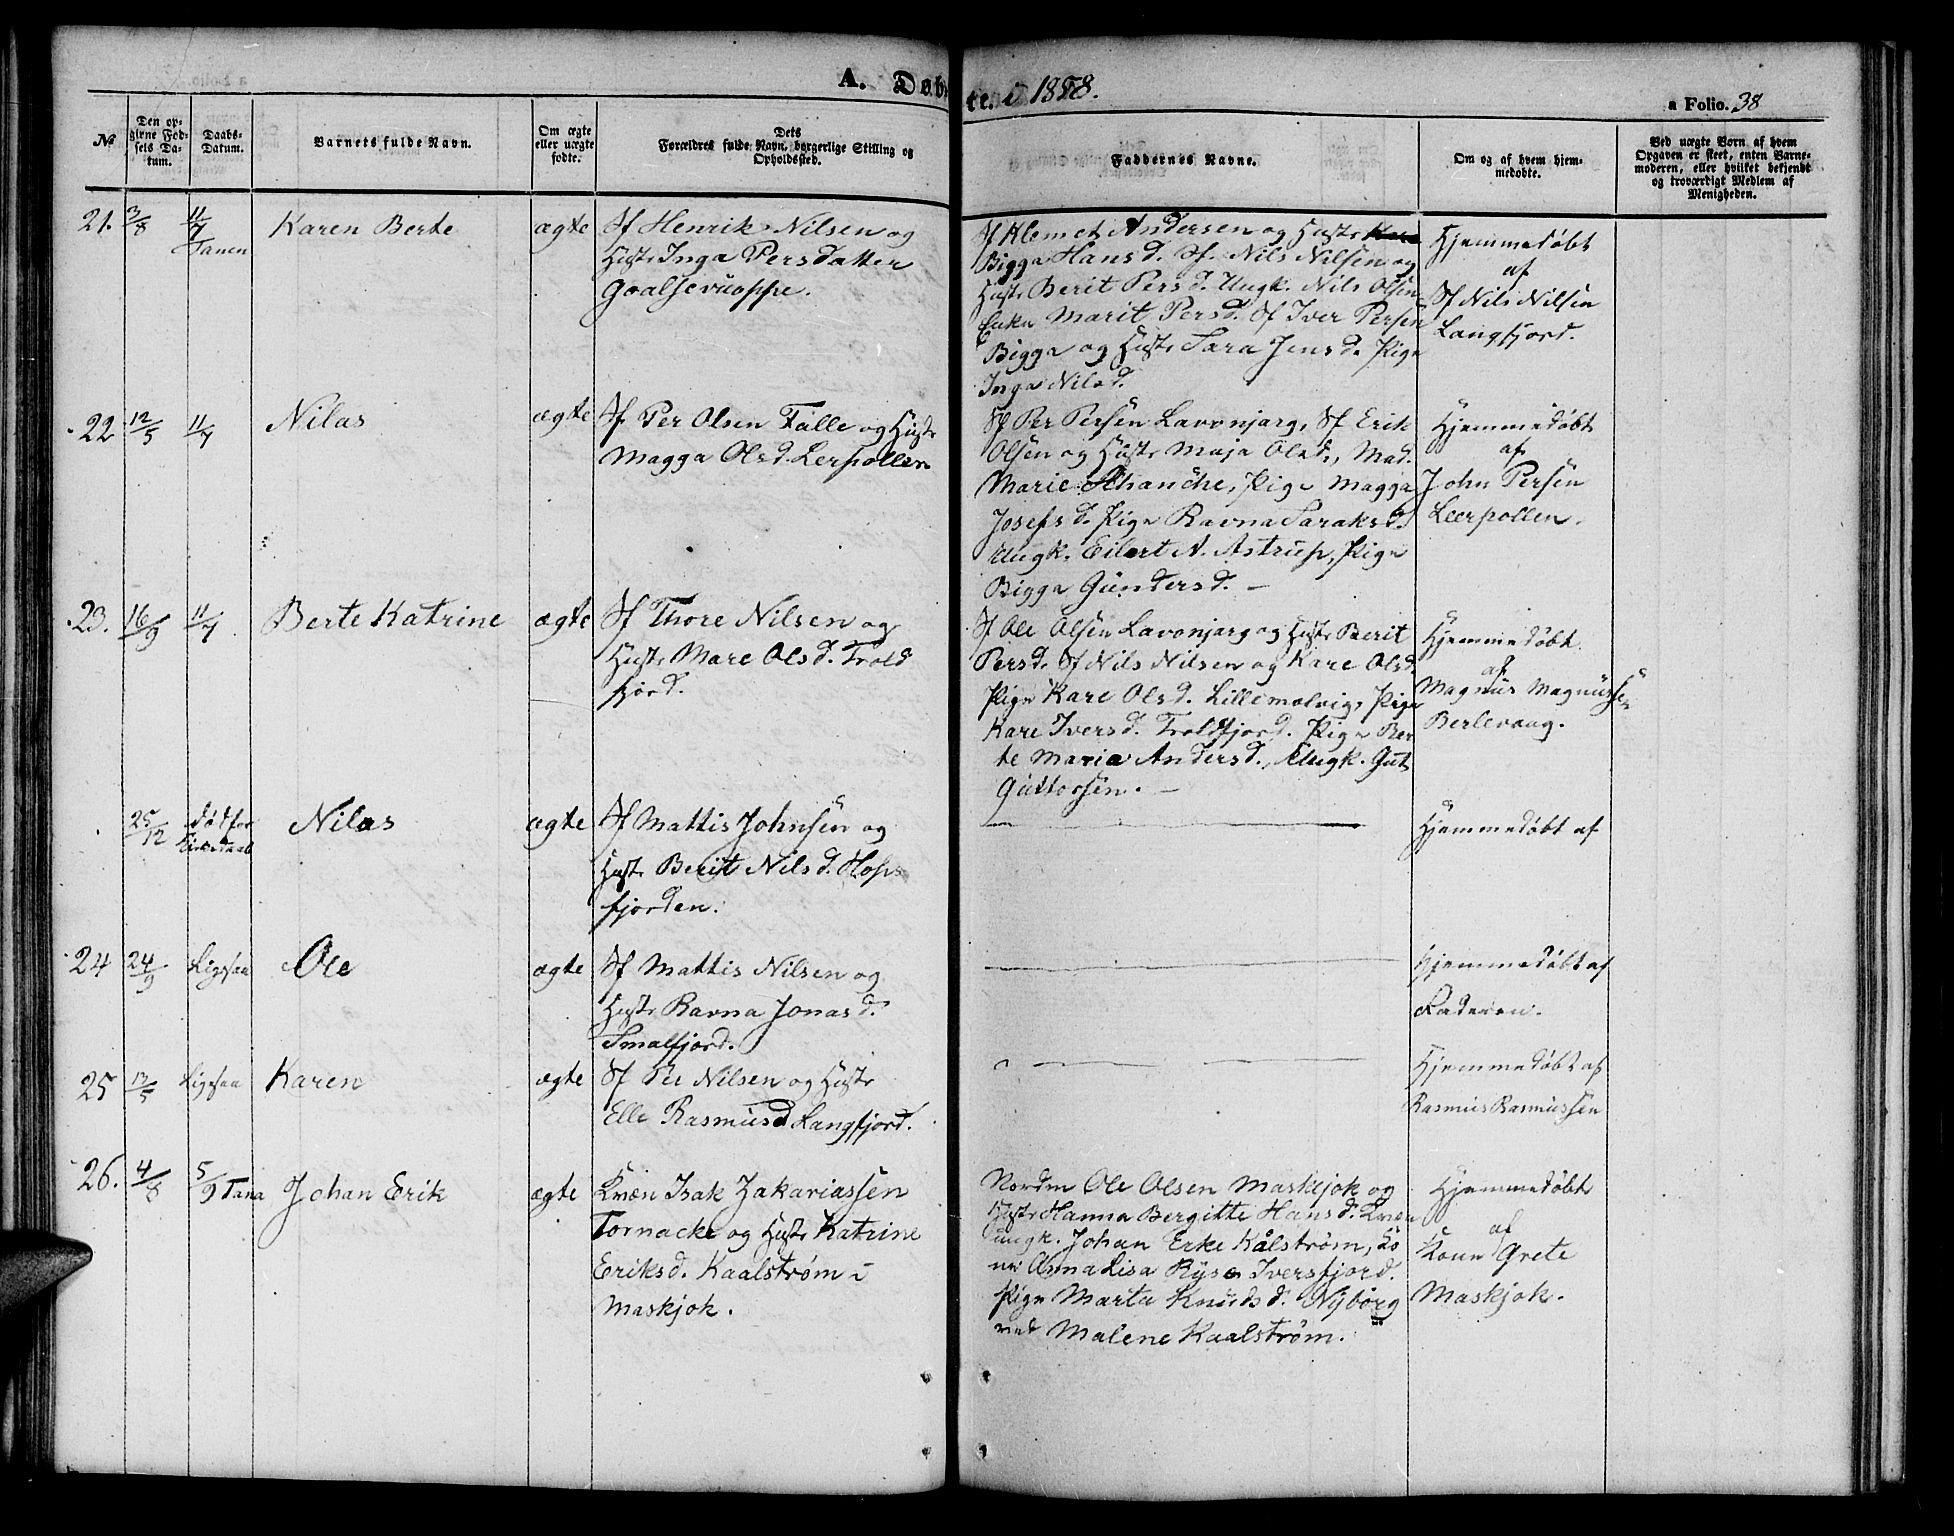 A. Døbte i 1858.
a Folio. 38
№
Den opgivne Fødsels Datum.
Daabs-Datum.
Barnets fulde Navn.
Om ægte eller uægte fødte.
Dets Forældres fulde Navn, borgerlige Stilling og Opholdssted.
Faddernes Navne.
Om og af hvem hjemmedøbte.
Ved uægte Børn af hvem Opgaven er skeet, enten Barnemoderen, eller hvilket bekjendt og troværdigt Medlem af Menigheden.
21. 3/8 11/7 Tanen
Karen Berte
ægte
Sf Henrik Nilsen og
Hustr Inga Persdatter
Goalsevuoppe.
Sf Klemet Andersen og Hustr
Bigga Hansd. Sf. Nils Nilsen og
Hustr Berit Persd. Ungk. Nils Olsen
Enke Marit Persd. Sf Iver Persen
Bigga og Hustr Sara Jensd. Pige
Inga Nilsd.
Hjemmedøbt
af
Sf Nils Nilsen
Langfjord.
22 12/5 11/7
Nilas
ægte
Sf Per Olsen Falle og Hustr
Magga Olsd. Lerpollen
Sf Per Persen Lavonjarg, Sf Erik
Olsen og Hustr Maja Olsd, Mad.
Marie Schanche, Pige Magga
Josefsd. Pige Ravna Saraksd.
Ungk. Eilert A. Astrup, Pige
Bigga Gundersd. –
Hjemmedøbt
af
John Persen
Leerpollen.
23. 16/9 11/7
Berte Katrine
ægte
Sf Thore Nilsen og
Hustr Mare Olsd. Trold
fjord.
Sf Ole Olsen Lavonjarg og Hustr Berit
Persd. Sf Nils Nilsen og Kare Olsd.
Pige Kare Olsd. Lillemolvig, Pige
Kare Iversd. Troldfjord. Pige Ber
te Maria Andersd., Ungk. Gut
Guttorsen. –
Hjemmedøbt
af
Magnus Magnussen
Berlevaag.
25/12 død før
Nilas
ægte
Sf Mattis Johnsen og
Hustr Berit Nilsd. Hops
fjorden.
Hjemmedøbt af
24 24/9 Ligesaa
Ole
ægte
Sf Mattis Nilsen og
Hustr Ravna Jonasd.
Smalfjord.
Hjemmedøbt af
Faderen.
25 13/5 Ligesaa
Karen
ægte
Sf Per Nilsen og Hustr
Elle Rasmusd Langfjord.
Hjemmedøbt af
Rasmus Rasmussen
26. 4/8 5/9 Tana
Johan Erik
ægte
Kvæn Isak Zakariassen
Tornacke og Hustr Katrine
Eriksd. Kaalstrøm i
Maskjok.
Nordm Ole Olsen Maskejok og
Hustr Hanna Bergitte Hansd. Kvæn
ungk. Johan Erke Kålstrøm, Ko
ne Anna Lisa Ryse Iversfjord.
Pige Marta Knudsd. Nyborg
Malene Kaalstrøm.
Hjemmedøbt
af
Kone Grete
Maskjok.